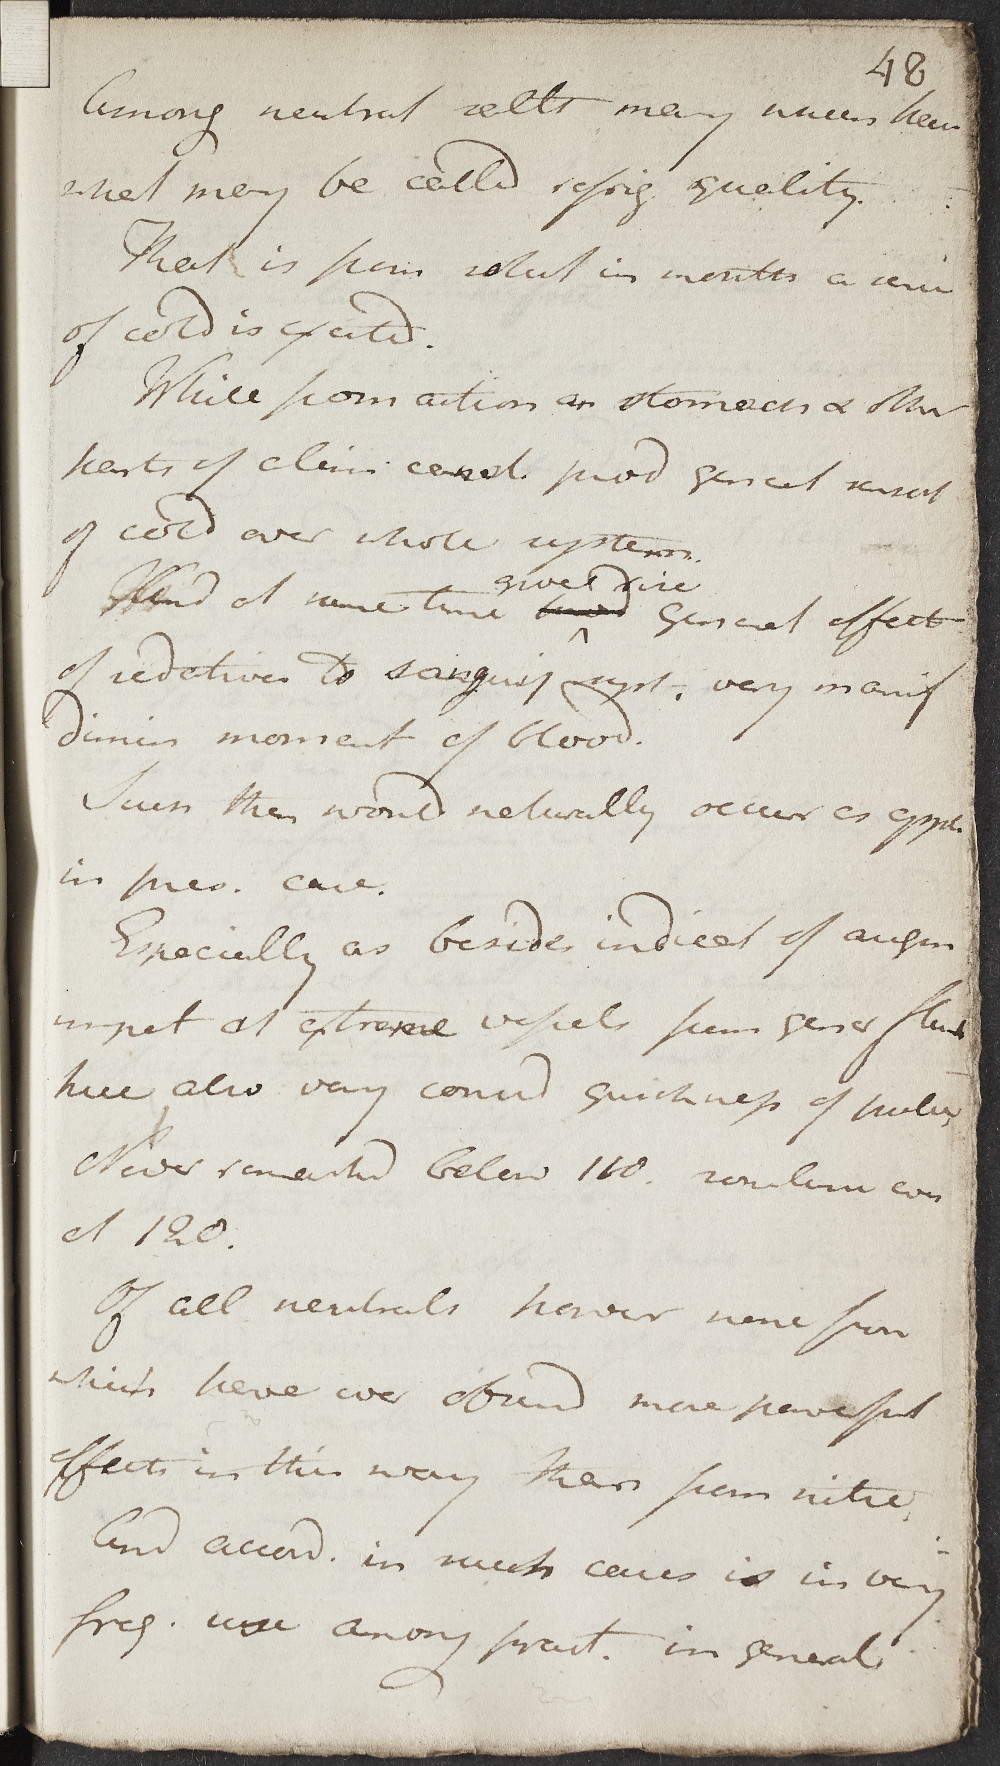 48
Among neutral salts many which have
what may be called refrig quality.
That is from solut in mouth a sen
of cold is excited.
While from action on stomach & other
parts of alim canal prod general sensat
of cold over whole system.
gives rise
And at same time general effect
of sedatives to sanguif syst. very manif
dimin moment of blood.
Such then would naturally occur as appl.
in pres. case.
Especially as besides indicat of augm
impet at extreme vessels from gener
here also very consid quickness of pulse,
Never remarked below 110. sometimes even
at 120.
Of all neutrals however none from
which have ever observd more powerful
effects in this way than from nitre,
And accord. in such cases is in very
freq. use among pract. in general